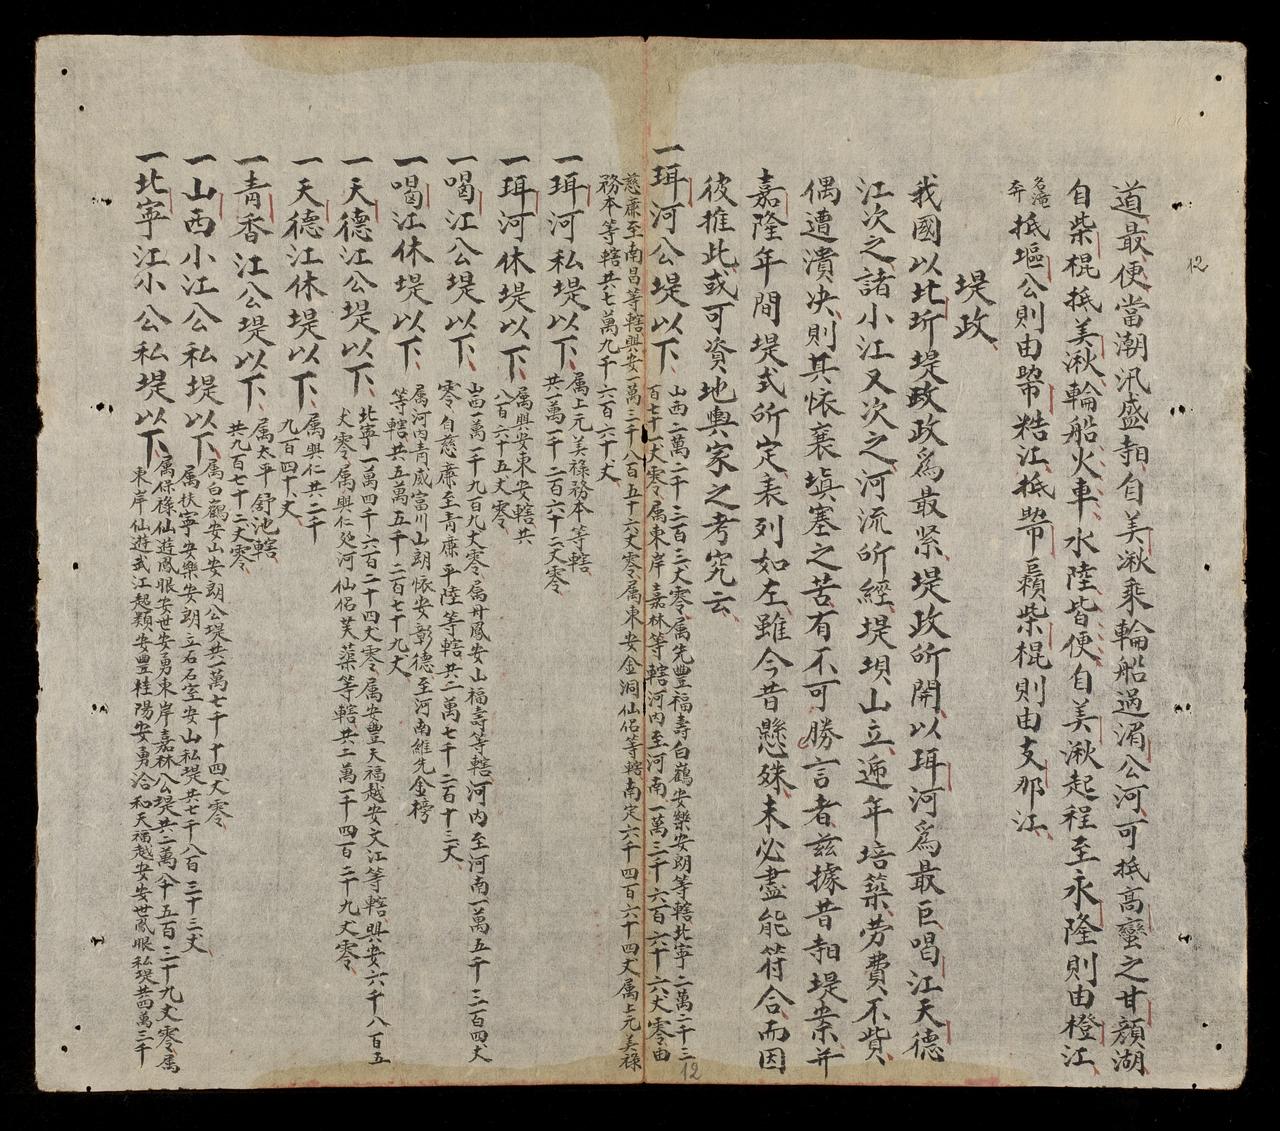 道最便當潮汛盛𣇞自美湫乘輪船過湄公河可抵高蠻之甘顏湖
自柴棍抵美湫輪船火車水陸皆便自美湫起程至永隆則由橙江
名淹
奔
抵塸公則由幣糙江抵幣賴柴棍則由支那江
堤政
我國以北圻堤政政爲最緊堤政所開以珥河爲最巨喝江天德
江次之諸小江又次之河流所經堤坝山立逓年培築劳費不貲
偶遭潰决則其怀襄塡塞之苦有不可勝言者兹據昔𣇞堤案并
嘉隆年間堤式所定表列如左雖今昔懸殊未必盡能符合而因
彼推此或可資地輿家之考究云
一珥河公堤以下
山西二萬二千三百三丈零属先豐福壽白鶴安樂安朗等轄北寧二萬二千三
百七十一丈零属東岸嘉林等轄河内至河南一萬三千六百六十六丈零由
慈廉至南昌等轄興安一萬三千八百五十六丈零属東安金洞仙侣等轄南定六千四百六十四丈属上元美祿
務本等轄共七萬九千六百六十丈
一珥河私堤以下
属上元美祿務本等轄
共一萬一千二百六十二丈零
一珥河休堤以下
属興安東安轄共
八百六十五丈零
一喝江公堤以下
山西一萬一千九百九丈零属丹鳳安山福壽等轄河内至河南一萬五千三百四丈
零自慈廉至青廉平陸等轄共二萬七千二百十三丈
一喝江休堤以下
属河内青威富川山朗怀安彰德至河南維先金榜
等轄共五萬五千二百七十九丈
一天德江公堤以下
北寧一萬四千六百二十四丈零属安豐天福越安文江等轄興安六千八百五
丈零属興仁延河仙侣芙蕖等轄共二萬一千四百二十九丈零
一天德江休堤以下
属興仁共二千
九百四十丈
一青香江公堤以下
属太平舒池轄
共九百七十二丈零
一山西小江公私堤以下
属白鶴安山安朗公堤共一萬七千十四丈零
属扶寧安樂安朗立石石室安山私堤共七千八百三十三丈
一北寧江小公私堤以下
属保祿仙遊鳳眼安世安勇東岸嘉林公堤共二萬八千五百二十九丈零属
東岸仙遊武江超類安豐桂陽安勇洽和天福越安安世鳳眼私堤共四萬三千
12
12